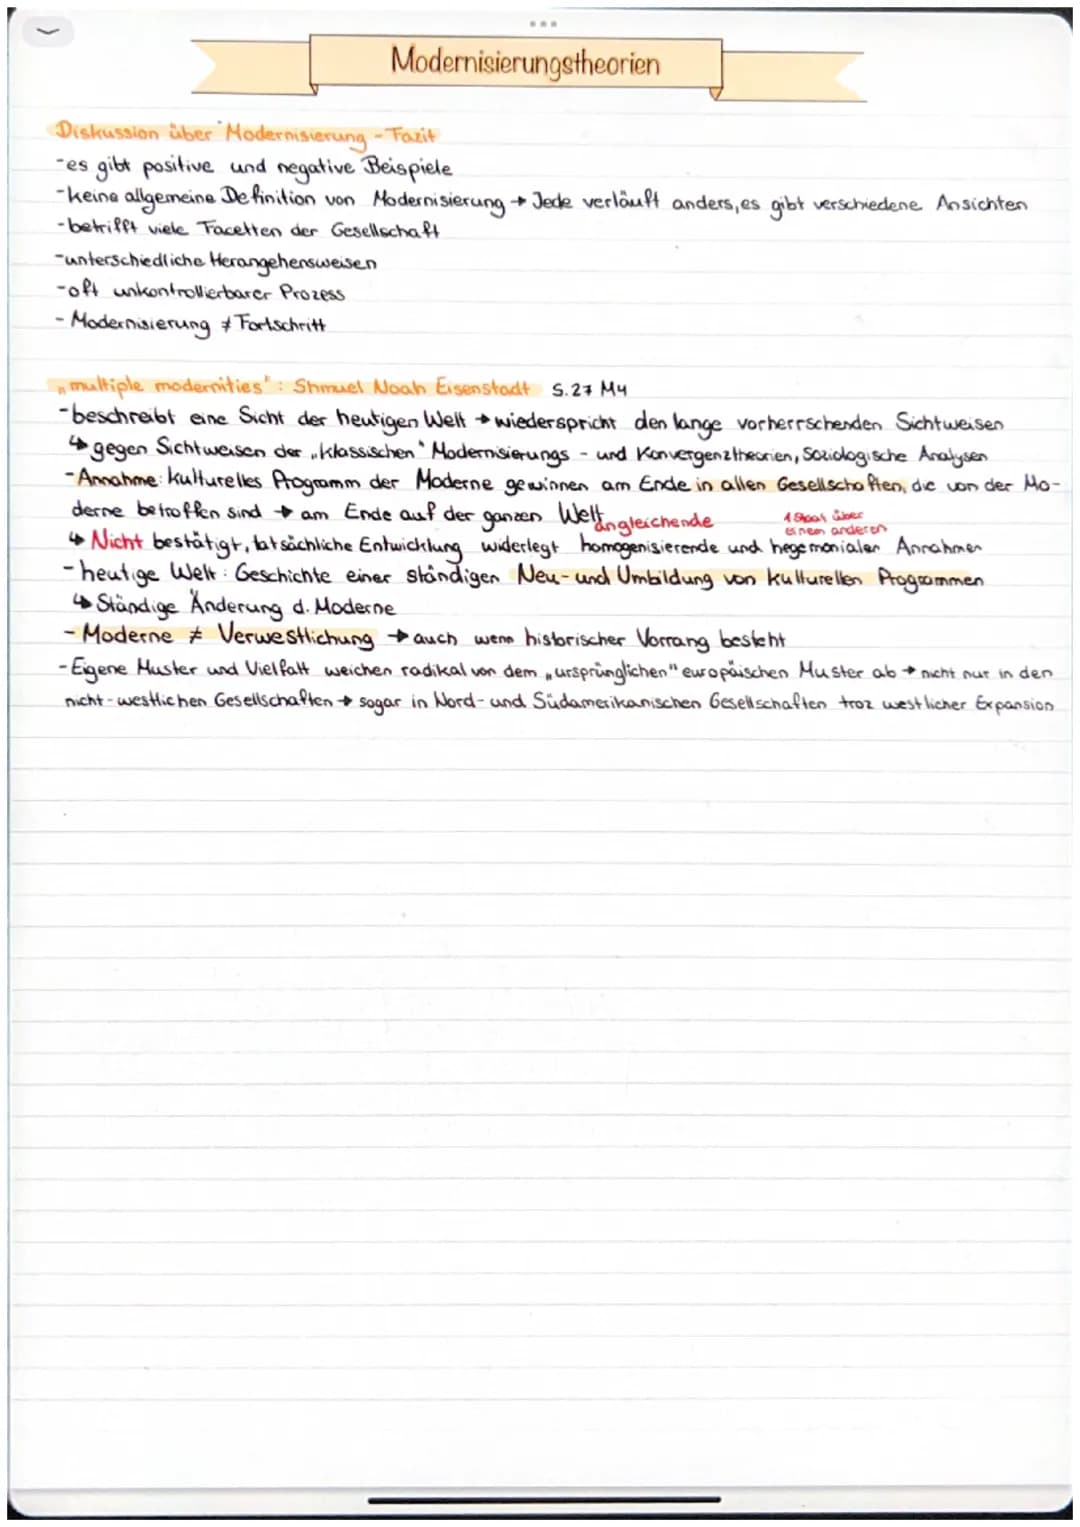 Modernisierungstheorien
Diskussion über Modernisierung - Fazit
-es gibt positive und negative Beispiele
-keine allgemeine Definition von Modernisierung → Jede verläuft anders, es gibt verschiedene Ansichten
-betrifft viele Facetten der Gesellschaft
-unterschiedliche Herangehensweisen
-oft unkontrollierbarer Prozess
- Modernisierung ≠ Fortschritt
„multiple modernities": Shmuel Noah Eisenstadt S.27 M4
-beschreibt eine Sicht der heutigen Welt → wiederspricht den lange vorherrschenden Sichtweisen
↳ gegen Sichtweisen der „klassischen" Modernisierungs - und Konvergenztheorien, Soziologische Analysen
-Annahme: kulturelles Programm der Moderne gewinnen am Ende in allen Gesellschaften, die von der Mo-
derne betroffen sind → am Ende auf der ganzen Welt
angleichende
1 Staat über
einem anderen
↳ Nicht bestätigt, tatsächliche Entwicklung widerlegt homogenisierende und hegemonialen Annahmen
-heutige Welt: Geschichte einer ständigen Neu- und Umbildung von kulturellen Programmen
↳ Ständige Änderung d. Moderne
- Moderne ≠ Verwestlichung → auch wenn historischer Vorrang besteht
-Eigene Muster und Vielfalt weichen radikal von dem „ursprünglichen" europäischen Muster ab → nicht nur in den
nicht-westlichen Gesellschaften → sogar in Nord- und Südamerikanischen Gesellschaften troz westlicher Expansion